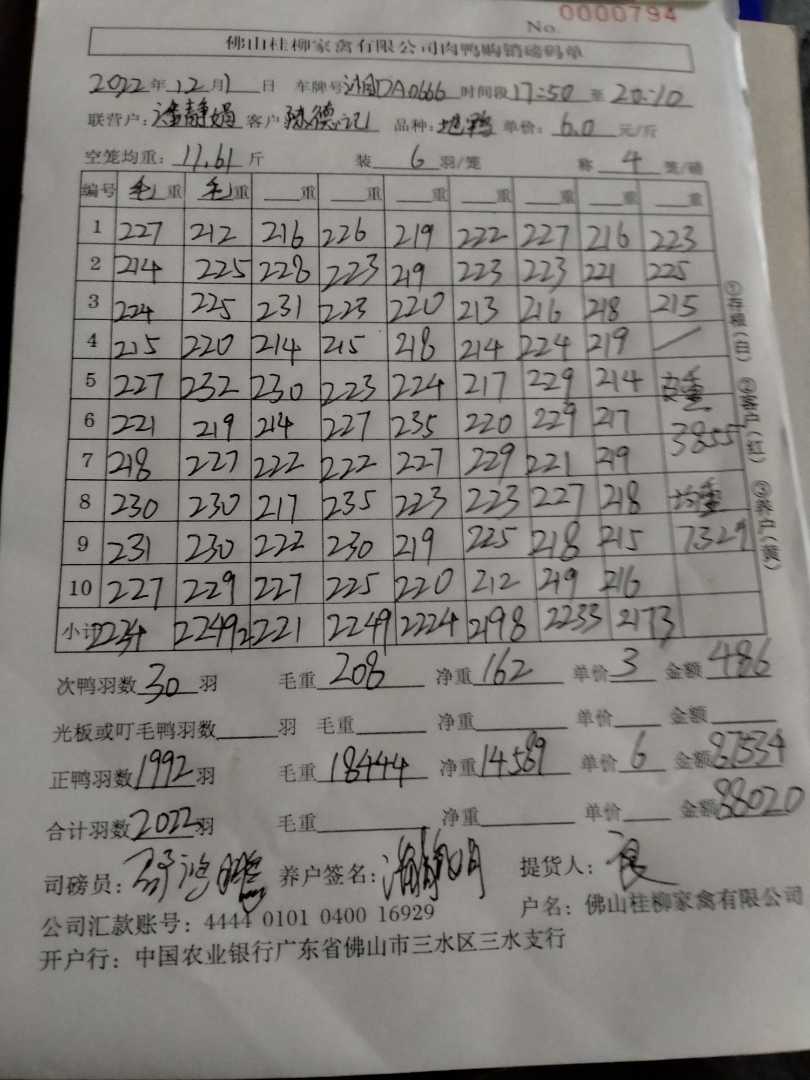 No. 0000794
佛山桂柳家禽有限公司肉鸭购销磅码单
2022年12月1日 车牌号湘DA0666 时间段17:50至20:10
联营户:潘静娟 客户 德记 品种:地鸭 单价:6.0元/斤
空笼均重:11.61斤 装6羽/笼 称4笼/磅
编号 毛重 毛重 重 重 重 重 重 重 重
1 227 212 216 226 219 222 227 216 223
2 214 225 228 223 219 223 223 221 225
3 224 225 231 223 220 213 216 218 215
4 215 220 214 215 218 214 224 219 /
5 227 232 230 223 224 217 229 214 皮重
6 221 219 214 227 235 220 229 217 3855
7 218 227 222 222 227 229 221 219
8 230 230 217 235 223 223 227 218 均重
9 231 230 222 230 219 225 218 215 7329
10 227 229 227 225 220 212 219 216
小计 2234 2249 2221 2249 2224 2198 2233 2173
次鸭羽数30羽 毛重208 净重162 单价3 金额486
光板或叮毛鸭羽数 羽 毛重 净重 单价 金额
正鸭羽数1992羽 毛重18444 净重14589 单价6 金额87534
合计羽数2022羽 毛重 净重 单价 金额88020
司磅员: 养户签名: 提货人:
公司汇款账号:4444 0101 0400 16929 户名:佛山桂柳家禽有限公司
开户行:中国农业银行广东省佛山市三水区三水支行
①存根(白) ②客户(红) ③养户(黄)